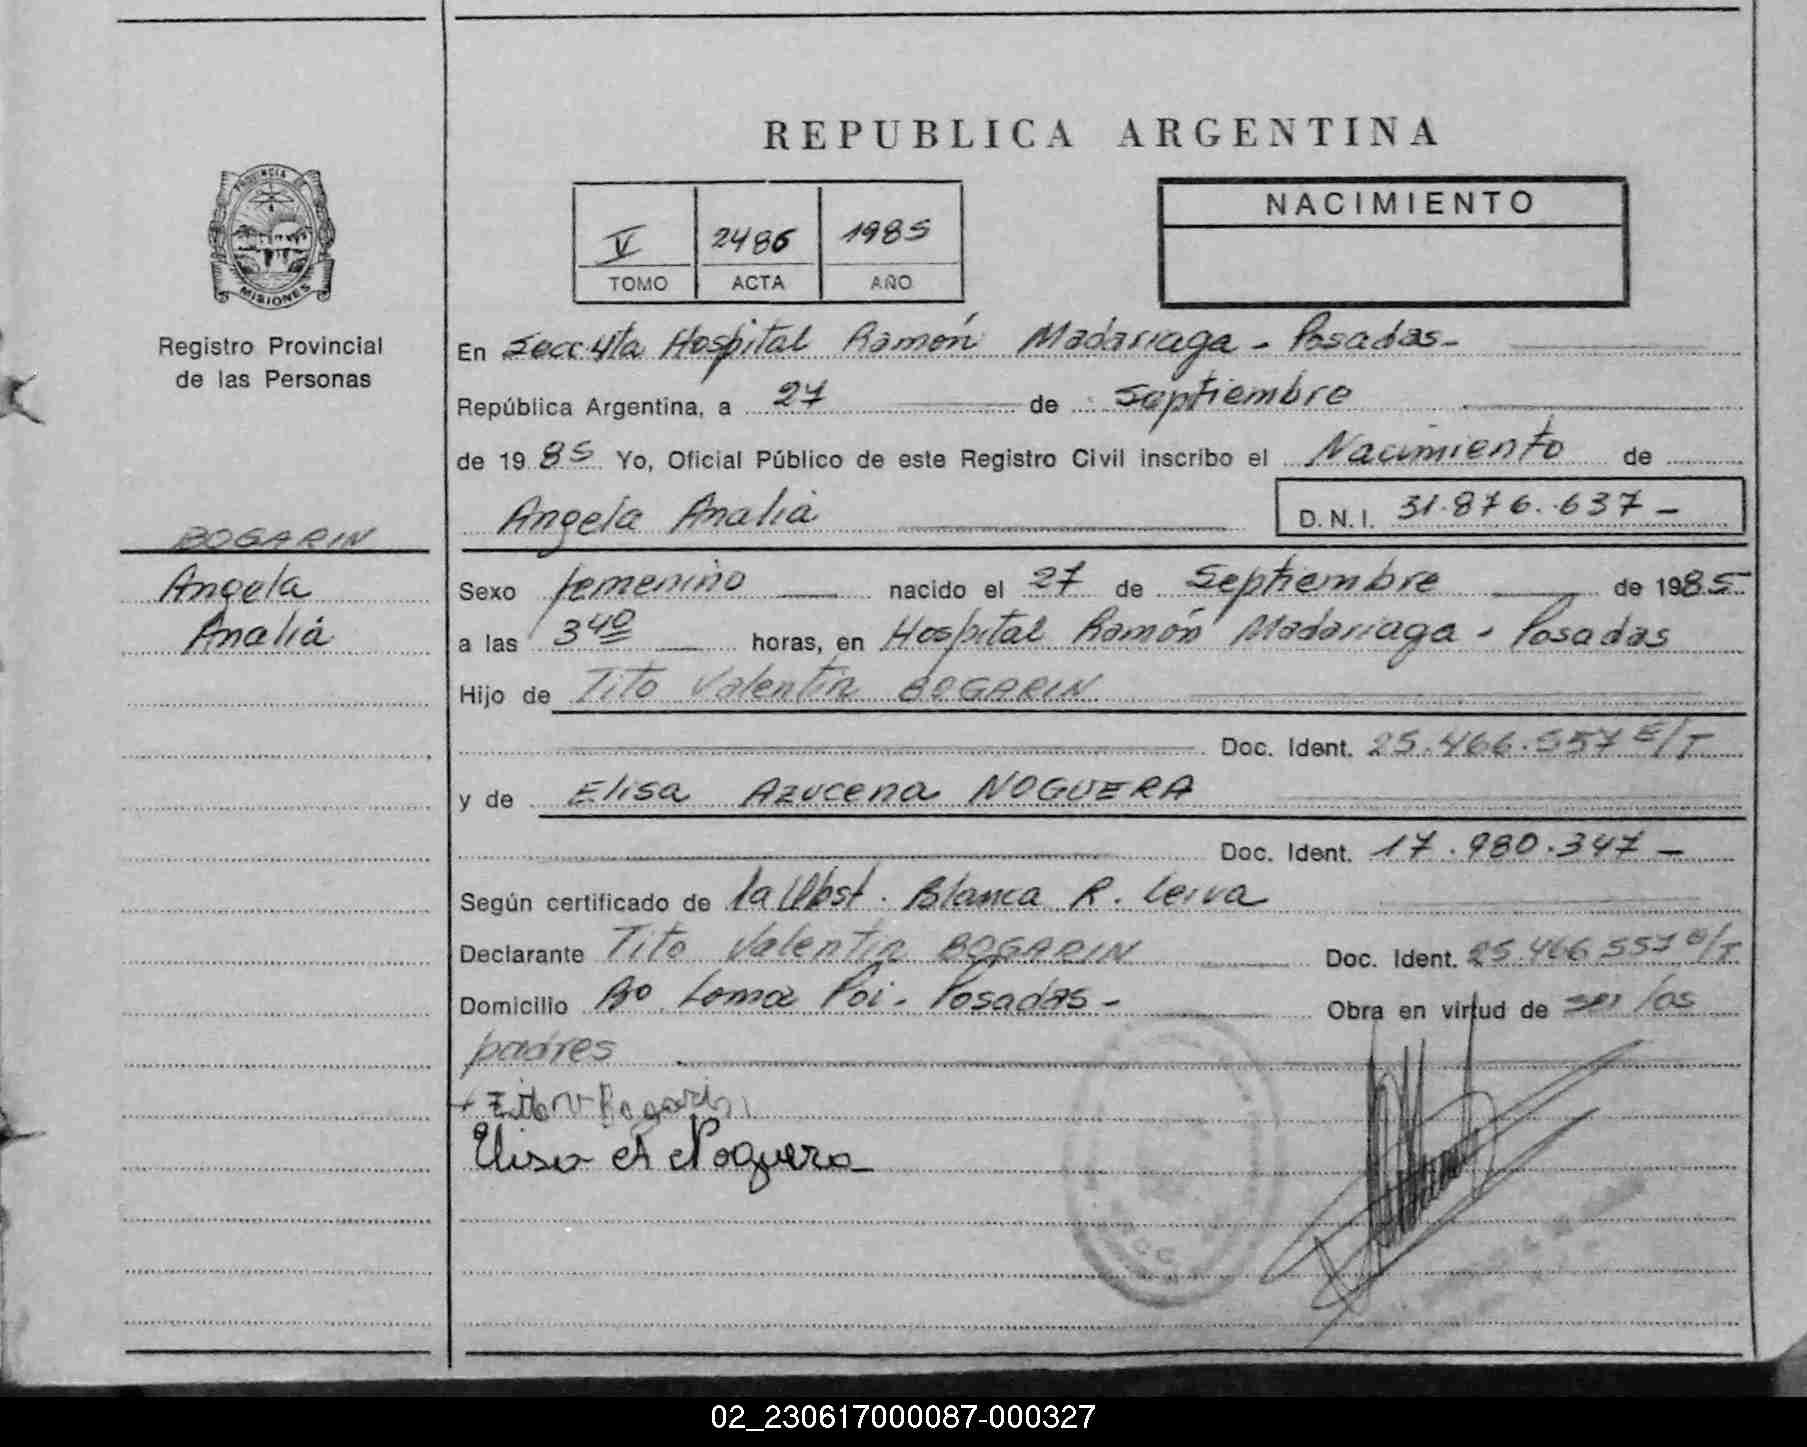 REPUBLICA ARGENTINA
PROVINCIA DE
MISIONES
Registro Provincial
de las Personas
V 2486 1985
TOMO ACTA AÑO
NACIMIENTO
En Secc 4ta Hospital Ramón Madariaga - Posadas-
República Argentina, a 27 de Septiembre
de 1985 Yo, Oficial Público de este Registro Civil inscribo el Nacimiento de
Angela Analia D.N.I. 31.876.637-
BOGARIN
Angela
Analia
Sexo femenino nacido el 27 de Septiembre de 1985
a las 3 40 horas, en Hospital Ramón Madariaga - Posadas
Hijo de Tito Valentin BOGARIN
Doc. Ident. 25.466.557 E/T
y de Elisa Azucena NOGUERA
Doc. Ident. 17.980.347-
Según certificado de la Obst. Blanca R. Leiva
Declarante Tito Valentin BOGARIN Doc. Ident. 25.466.557 E/T
Domicilio Bo Loma Poi - Posadas- Obra en virtud de ser los
padres
Tito V Bogarin
Elisa A Noguera
02_230617000087-000327